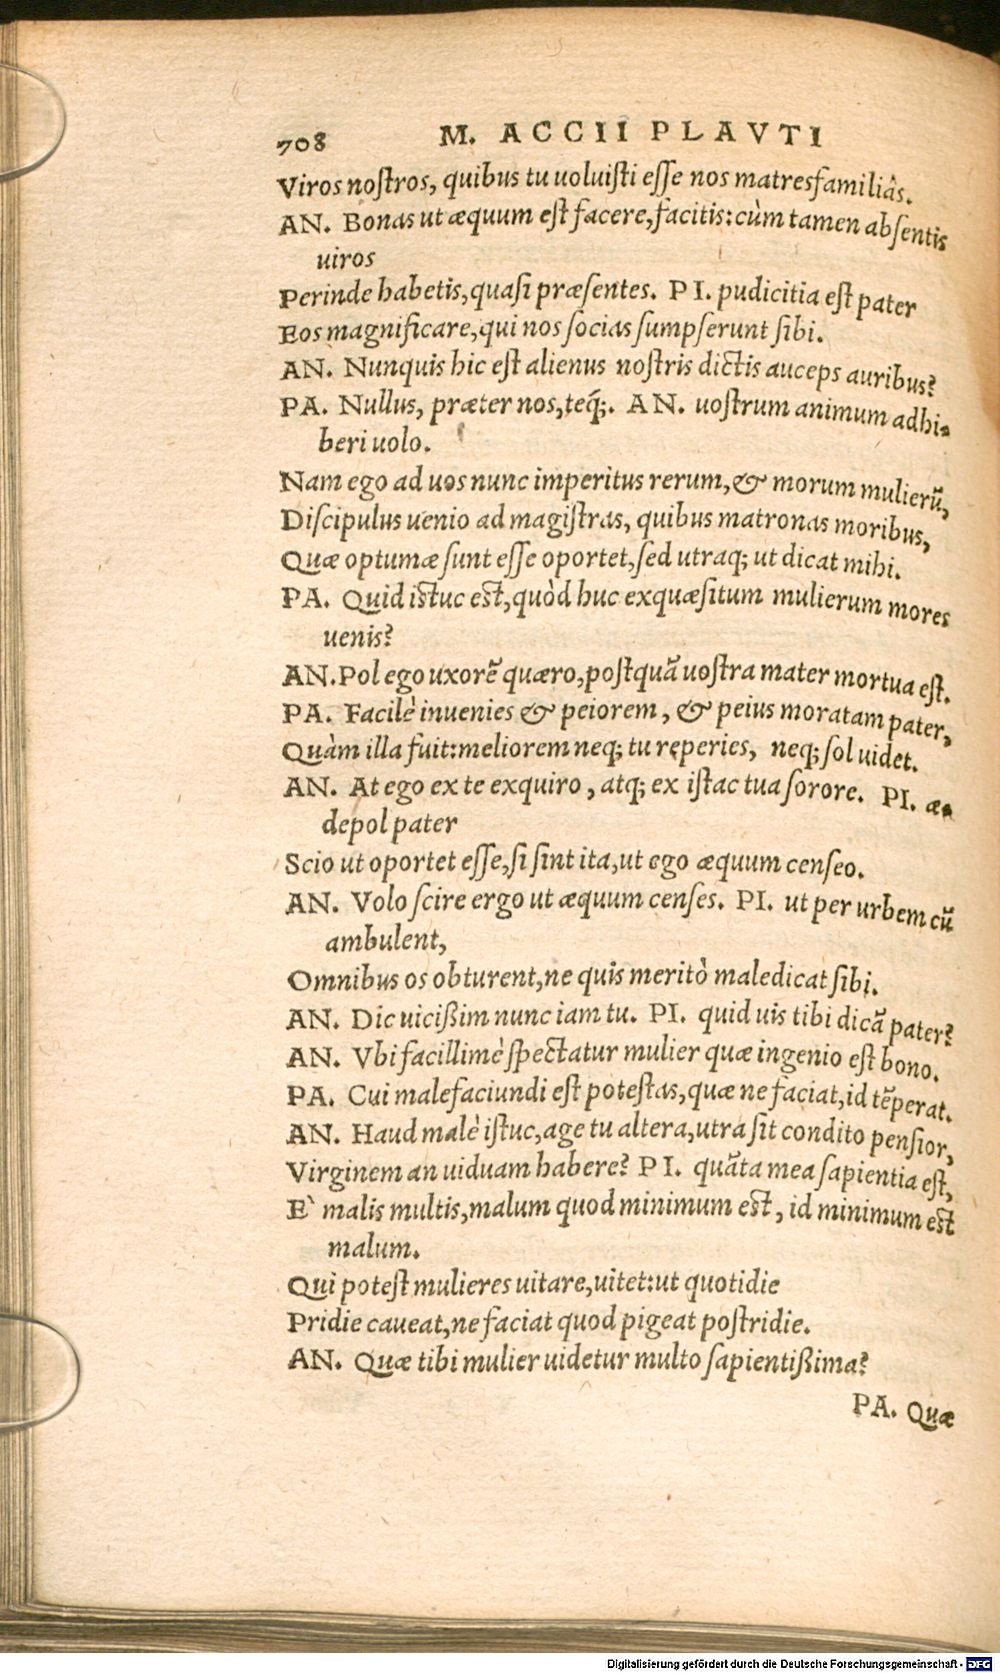 708 M. ACCII PLAVTI
Viros nostros, quibus tu uoluisti esse nos matresfamiliâs.
AN. Bonas ut æquum est facere, facitis: cùm tamen absentis
uiros
Perinde habetis, quasi præsentes. PI. pudicitia est pater
Eos magnificare, qui nos socias sumpserunt sibi.
AN. Nunquis hic est alienus nostris dictis auceps auribus?
PA. Nullus, præter nos, teq́;. AN. uostrum animum adhi-
beri uolo.
Nam ego ad uos nunc imperitus rerum, & morum mulierũ,
Discipulus uenio ad magistras, quibus matronas moribus,
Quæ optumæ sunt esse oportet, sed utraq; ut dicat mihi.
PA. Quid istuc est, quòd huc exquæsitum mulierum mores
uenis?
AN. Pol ego uxorẽ quæro, postquã uostra mater mortua est.
PA. Facilè inuenies & peiorem, & peius moratam pater,
Quàm illa fuit: meliorem neq; tu reperies, neq; sol uidet.
AN. At ego ex te exquiro, atq; ex istac tua sorore. PI. æ-
depol pater
Scio ut oportet esse, si sint ita, ut ego æquum censeo.
AN. Volo scire ergo ut æquum censes. PI. ut per urbem cũ
ambulent,
Omnibus os obturent, ne quis meritò maledicat sibi.
AN. Dic uicißim nunc iam tu. PI. quid uis tibi dicã pater?
AN. Vbi facillimè spectatur mulier quæ ingenio est bono.
PA. Cui malefaciundi est potestas, quæ ne faciat, id tẽperat.
AN. Haud malè istuc, age tu altera, utra sit condito pensior,
Virginem an uiduam habere? PI. quãta mea sapientia est,
E` malis multis, malum quod minimum est, id minimum est
malum.
Qui potest mulieres uitare, uitet: ut quotidie
Pridie caueat, ne faciat quod pigeat postridie.
AN. Quæ tibi mulier uidetur multo sapientißima?
PA. Quæ
Digitalisierung gefördert durch die Deutsche Forschungsgemeinschaft - DFG